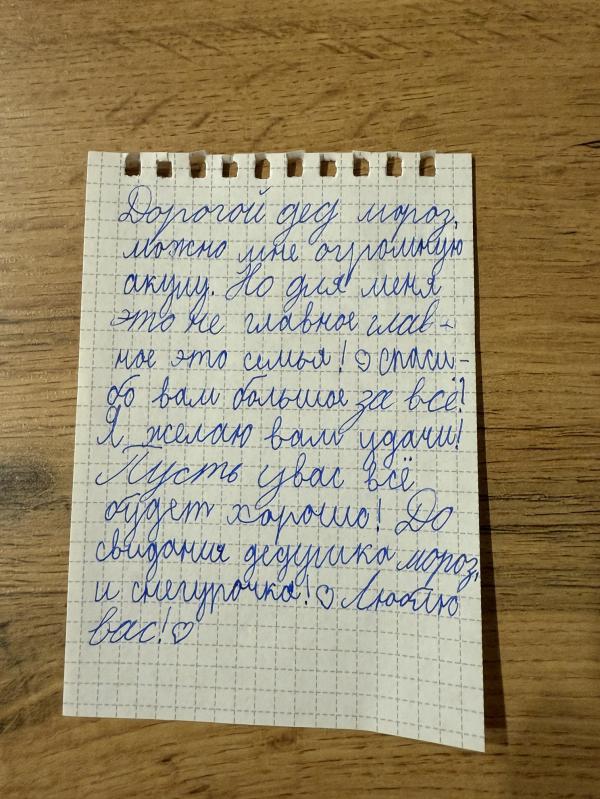 Дорогой дед мороз,
можно мне огромную
акулу. Но для меня
это не главное глав-
ное это семья! ♡ спаси-
бо вам большое за всё!
Я желаю вам удачи!
Пусть увас всё
будет хорошо! До
свидания дедушка мороз,
и снегурочка! ♡ Люблю
вас! ♡